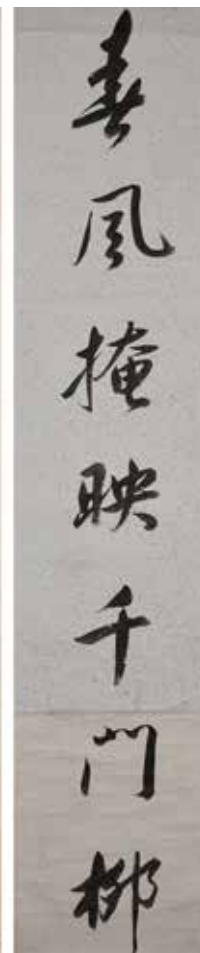 春風掩映千門柳